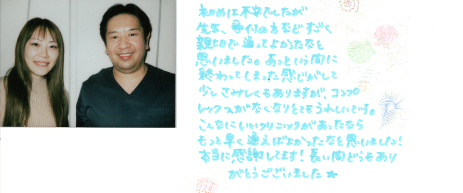 初めは不安でしたが
先生、受付の方などすごく
親切で通ってよかったなと
思いました。あっという間に
終わってしまった感じがして
少しさみしくもありますが、コンプ
レックスがなくなりとてもうれしいです。
こんなにいいクリニックがあったなら
もっと早く通えばよかったなと思いました!
本当に感謝してます!長い間どうもあり
がとうございました☆